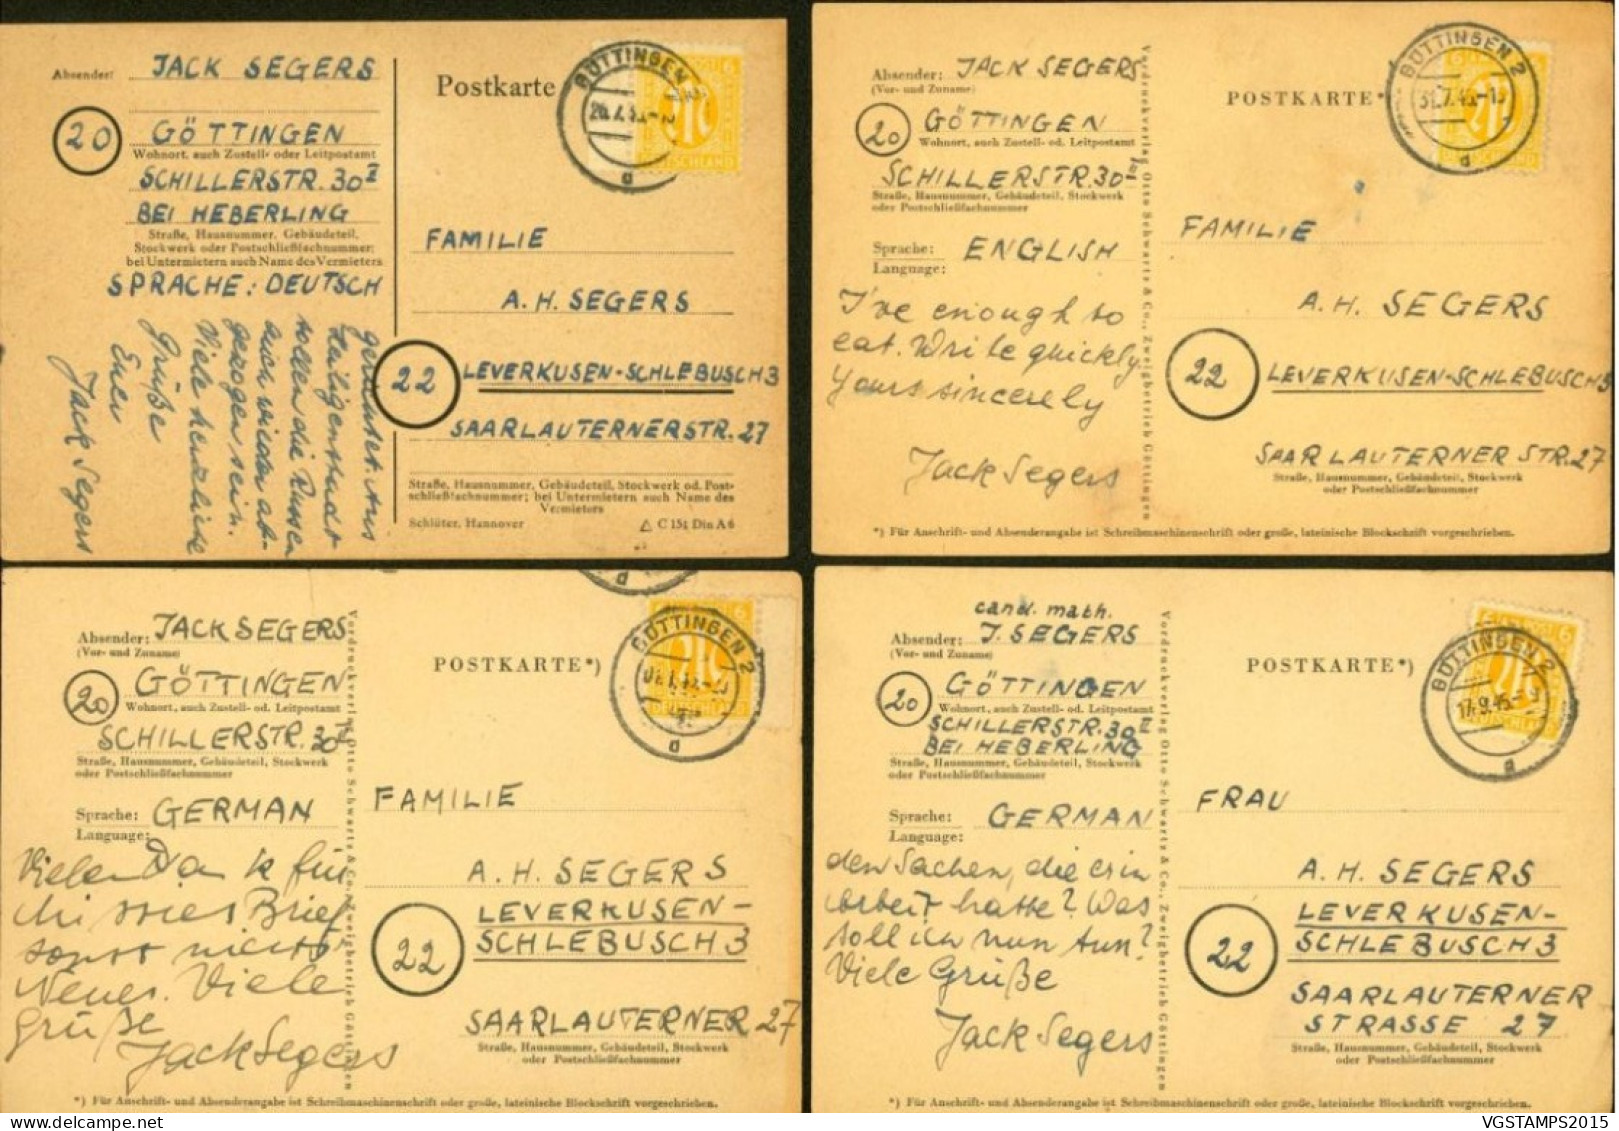 Absender: JACK SEGERS
20
GÖTTINGEN
Wohnort, auch Zustell- oder Leitpostamt
SCHILLERSTR. 30 II
BEI HEBERLING
Straße, Hausnummer, Gebäudeteil,
Stockwerk oder Postschließfachnummer;
bei Untermietern auch Name des Vermieters
SPRACHE: DEUTSCH
gerechnet. Aus
Heiligenstadt
sollen die Russen
auch wieder ab-
gezogen sein.
Viele herzliche
Grüße
Euer
Jack Segers
Postkarte
GÖTTINGEN
DEUTSCHLAND
a
FAMILIE
A. H. SEGERS
22 LEVERKUSEN-SCHLEBUSCH 3
SAARLAUTERNERSTR. 27
Straße, Hausnummer, Gebäudeteil, Stockwerk od. Post-
schließfachnummer; bei Untermietern auch Name des
Vermieters
Schlüter, Hannover C 154 Din A 6
Absender: JACK SEGERS
(Vor- und Zuname)
20 GÖTTINGEN
Wohnort, auch Zustell- od. Leitpostamt
SCHILLERSTR. 30
Straße, Hausnummer, Gebäudeteil, Stockwerk
oder Postschließfachnummer
Sprache: ENGLISH
Language:
I've enough to
eat. Write quickly
Yours sincerely
Jack Segers
Vordruckverlag Otto Schwartz & Co., Zweigbetrieb Göttingen
POSTKARTE*)
GÖTTINGEN 2
31.7.45
a
FAMILIE
A. H. SEGERS
22 LEVERKUSEN-SCHLEBUSCH 3
SAARLAUTERNER STR. 27
Straße, Hausnummer, Gebäudeteil, Stockwerk
oder Postschließfachnummer
*) Für Anschrift- und Absenderangabe ist Schreibmaschinenschrift oder große, lateinische Blockschrift vorgeschrieben.
Absender: JACK SEGERS
(Vor- und Zuname)
20 GÖTTINGEN
Wohnort, auch Zustell- od. Leitpostamt
SCHILLERSTR. 30 II
Straße, Hausnummer, Gebäudeteil, Stockwerk
oder Postschließfachnummer
Sprache: GERMAN
Language:
Vielen Dank für
Brief
sonst nichts
Neues. Viele
Grüße
Jack Segers
Vordruckverlag Otto Schwartz & Co., Zweigbetrieb Göttingen
POSTKARTE*)
GÖTTINGEN 2
DEUTSCHLAND
a
FAMILIE
A. H. SEGERS
22
LEVERKUSEN-
SCHLEBUSCH 3
SAARLAUTERNER 27
Straße, Hausnummer, Gebäudeteil, Stockwerk
oder Postschließfachnummer
*) Für Anschrift- und Absenderangabe ist Schreibmaschinenschrift oder große, lateinische Blockschrift vorgeschrieben.
cand. math.
Absender: J. SEGERS
(Vor- und Zuname)
20 GÖTTINGEN
Wohnort, auch Zustell- od. Leitpostamt
SCHILLERSTR. 30 II
BEI HEBERLING
Straße, Hausnummer, Gebäudeteil, Stockwerk
oder Postschließfachnummer
Sprache: GERMAN
Language:
den Sachen, die er in
Arbeit hatte? Was
soll ich nun tun?
Viele Grüße
Jack Segers
Vordruckverlag Otto Schwartz & Co., Zweigbetrieb Göttingen
POSTKARTE*)
GÖTTINGEN 2
17.9.45
a
FRAU
A. H. SEGERS
22
LEVERKUSEN-
SCHLEBUSCH 3
SAARLAUTERNER
STRASSE 27
Straße, Hausnummer, Gebäudeteil, Stockwerk
oder Postschließfachnummer
*) Für Anschrift- und Absenderangabe ist Schreibmaschinenschrift oder große, lateinische Blockschrift vorgeschrieben.
VGSTAMPS2015